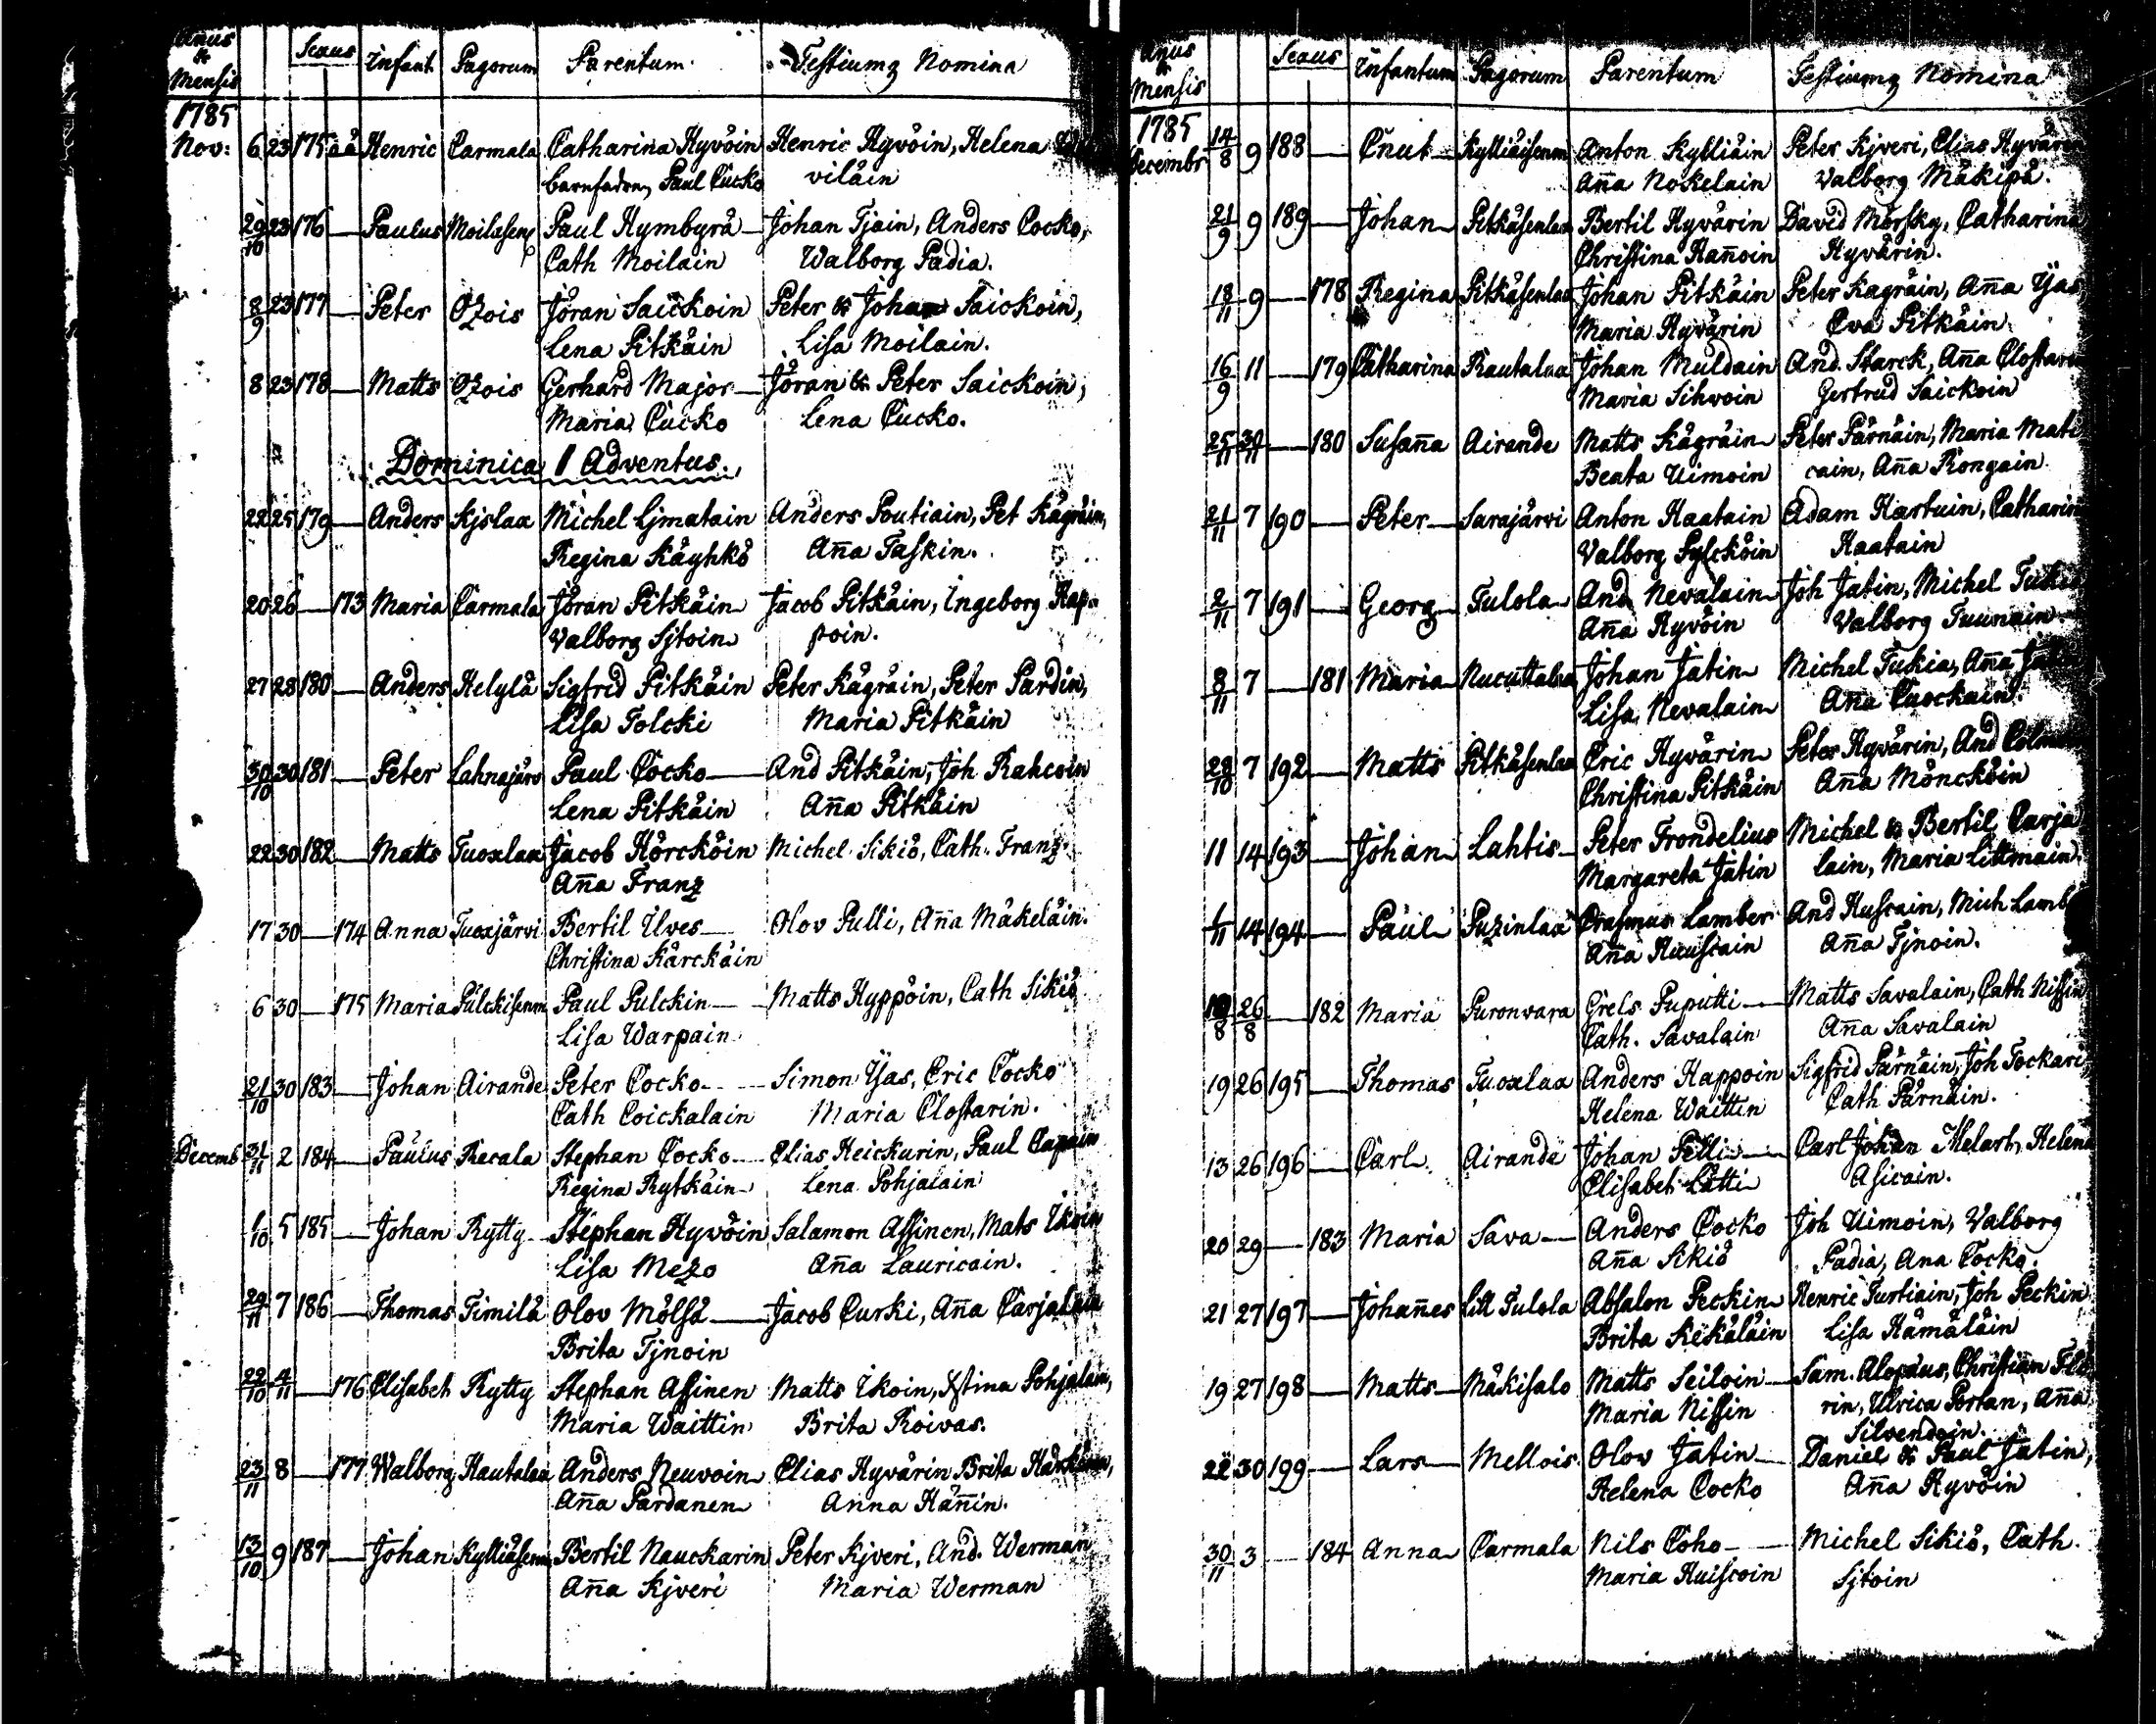 Anus & Mensis Sexus Infant Pagorum Parentum Testiumq Nomina
1785
Nov: 6 23 175 Henric Carmala Catharina Hyvöin Henric Hyvöin, Helena
barnfadren, Paul Cucko viläin
29/10 23 176 — Paulus Paul Hymbyrä — Johan Tjain, Anders Cocko,
Cath Moilain Walborg Padia.
8/9 23 177 — Peter Ozois Jöran Saickoin Peter & Johan Saickoin,
Lena Pitkäin Lisa Moilain.
8 23 178 — Matts Ozois Gerhard Major — Jöran & Peter Saickoin,
Maria Cucko Lena Cucko.
Dominica 1 Adventus.
22 25 179 — Anders Kjslax Michel Ljmatain Anders Poutiain, Pet Kägräin,
Regina Käyhkö Aña Taskin.
20 26 — 173 Maria Carmala Jöran Pitkäin Jacob Pitkäin, Ingeborg Hap-
Valborg Sjtoin poin.
27 28 180 — Anders Helylä Sigfrid Pitkäin Peter Kägräin, Peter Pardin,
Lisa Tolcki Maria Pitkäin
30/10 30 181 — Peter Lahnajärv Paul Cocko — And Pitkäin, Joh Rahcoin
Lena Pitkäin Aña Pitkäin
22 30 182 — Matts Tuoxlax Jacob Hörcköin Michel Sikiö, Cath. Franz
Aña Franz
17 30 — 174 Anna Tuoxjärvi Bertil Ilves — Olov Pulli, Aña Mäkeläin.
Christina Kärckäin
6 30 — 175 Maria Pulckisenm Paul Pulckin — Matts Hyppöin, Cath Sikiö
Lisa Warpain
21/10 30 183 — Johan Airande Peter Cocko — Simon Yjas, Eric Cocko
Cath Coickalain Maria Clostarin.
Decemb 31/11 2 184 — Paulus Recala Stephan Cocko — Elias Heickurin, Paul
Regina Rytkäin Lena Pohjalain
1/10 5 185 — Johan Rytty Stephan Hyvöin Salamon Assinen, Mats Ikoin
Lisa Mezo Aña Lauricain.
29/11 7 186 — Thomas Timilä Olov Mölsä — Jacob Curki, Aña Carjalain
Brita Tjnoin
22/10 4/11 — 176 Elisabet Rytty Stephan Assinen Matts Ikoin, Xstina Pohjalain,
Maria Waittin Brita Roivas.
23/11 8 — 177 Walborg Hautalax Anders Neuvoin Elias Hyvärin Brita
Aña Pardanen Anna Häñin.
13/10 9 187 — Johan Kylliäsenm Bertil Nauckarin Peter Kjveri, And. Werman
Aña Kjveri Maria Werman
Anus & Mensis Sexus Infantum Pagorum Parentum Testiumq Nomina
1785
Decembr 14/8 9 188 — Cnut Kylliäisenm Anton Kylliäin Peter Kjveri, Elias Hyvärin
Aña Nokelain Valborg Mäkipä.
21/9 9 189 — Johan Pitkäsenlax Bertil Hyvärin David Morsky, Catharina
Christina Hañoin Hyvärin.
18/11 9 — 178 Regina Pitkäsenlax Johan Pitkäin Peter Kagräin, Aña Yjas
Maria Hyvärin Eva Pitkäin
16/9 11 — 179 Catharina Rautalax Johan Muldain And. Starck, Aña
Maria Sihvoin Gertrud Saickoin
25/11 30/11 — 180 Susaña Airande Matts Kägräin Peter Pärnäin, Maria Mati
Beata Uimoin cain, Aña Rongain.
21/11 7 190 — Peter Sarajärvi Anton Haatain Adam Hartuin, Catharin
Valborg Sylcköin Haatain
2/11 7 191 — Georg Tulola And Nevalain Joh Jatin, Michel
Aña Hyvöin Valborg Tuunain
8/11 7 — 181 Maria Nucuttalax Johan Jatin Michel Tukia, Aña
Lisa Nevalain Aña Cuockain.
28/10 7 192 — Matts Pitkäsenlax Eric Hyvärin Peter Hyvärin, And
Christina Pitkäin Aña Möncköin
11 14 193 — Johan Lahtis Peter Trondelius Michel & Bertil Carja
Margareta Jatin lain, Maria Littmain
1/11 14 194 — Paul Puzinlax Erasmus Lamber And Huscain, Mich Lamb
Aña Huuscain Aña Tjnoin.
18/8 26/8 — 182 Maria Puronvara Grels Puputti — Matts Savalain, Cath Nissin
Cath. Savalain Aña Savalain
19 26 195 — Thomas Tuoxlax Anders Happoin Sigfrid Pärnäin, Joh Tockari
Helena Waittin Cath Pärnäin.
13 26 196 — Carl Airande Johan Pelli — Carl Johan Melart, Helena
Elisabet Lätti Asicain.
20 29 — 183 Maria Sava — Anders Cocko Joh Uimoin, Valborg
Aña Sikiö Padia, Ana Cocko.
21 27 197 — Johañes Litl Tulola Absalon Peckin Henric Turtiain, Joh Peckin
Brita Kekäläin Lisa Hämäläin
19 27 198 — Matts Mäkisalo Matts Seiloin Sam. Alopæus, Christian
Maria Nissin rin, Ulrica Portan, Aña
Silvendoin.
22 30 199 — Lars Mellois Olov Jatin — Daniel & Paul Jatin,
Helena Cocko Aña Hyvöin
30/11 3 — 184 Anna Carmala Nils Coho — Michel Sikiö, Cath.
Maria Huiscoin Sjtoin